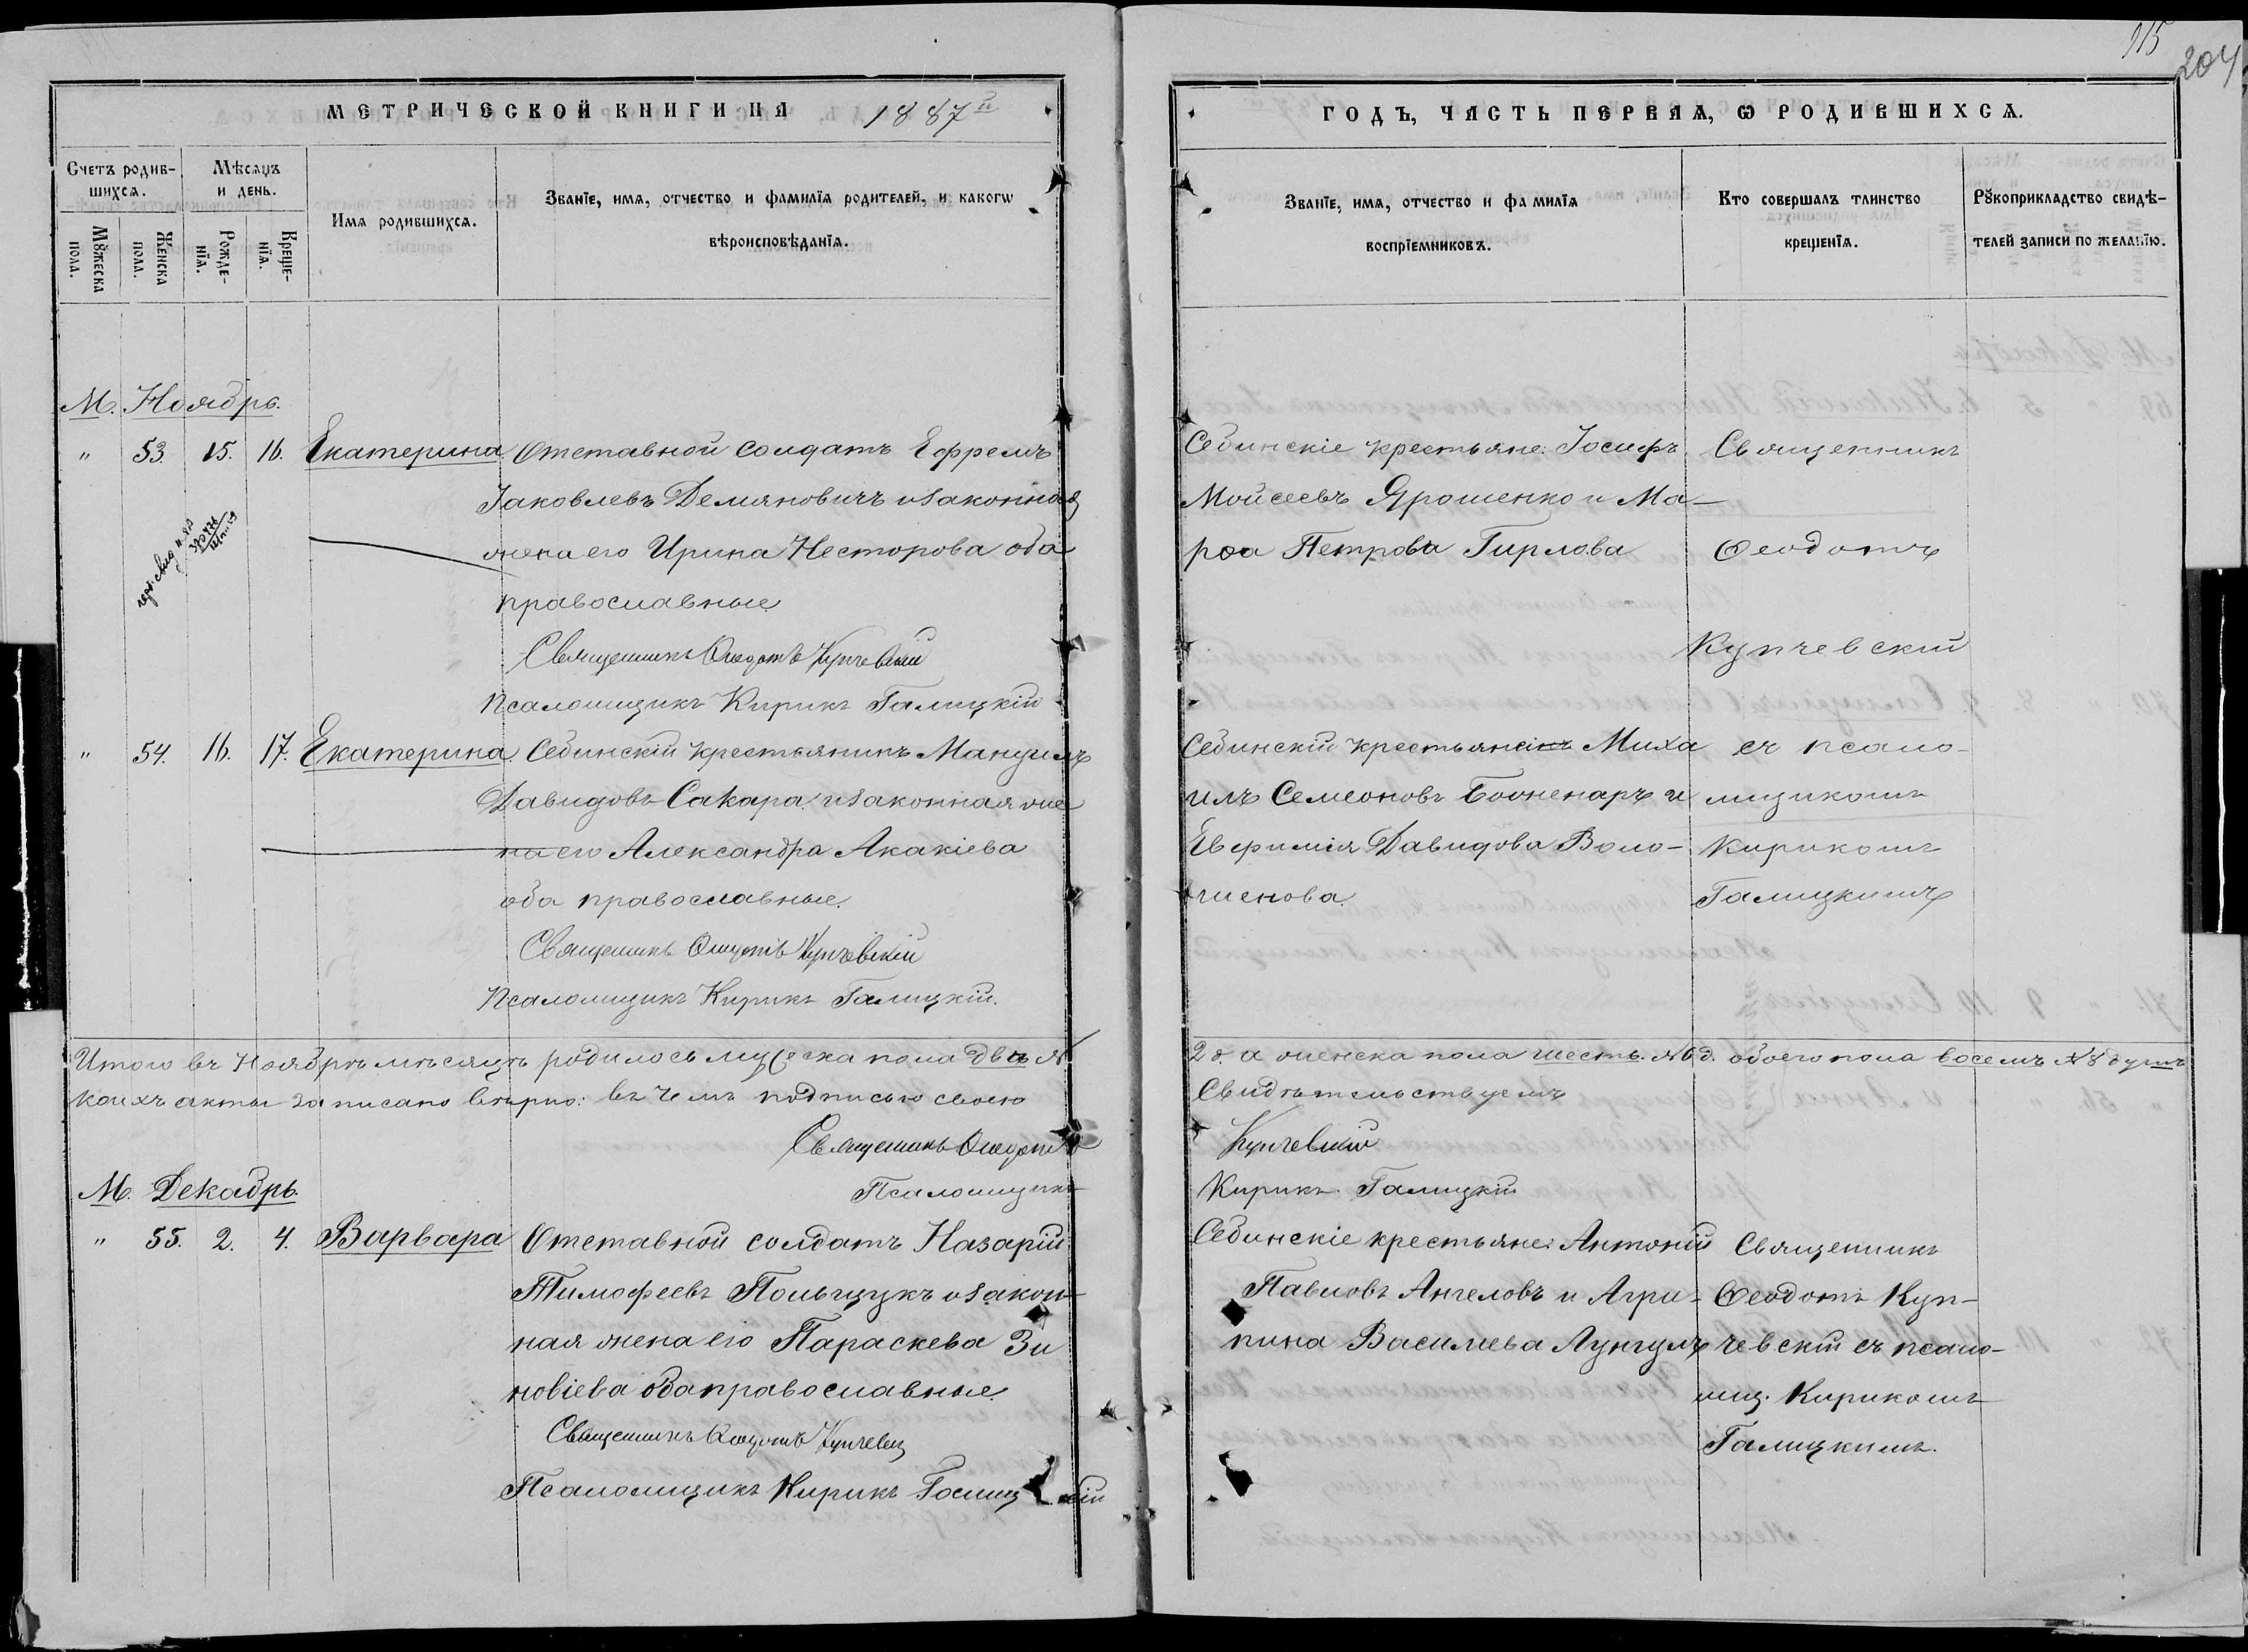 115
204
МЕТРИЧЕСКОЙ КНИГИ НА 1887й
ГОДЪ, ЧАСТЬ ПЕРВАЯ, Ѡ РОДИВШИХСѦ.
Счетъ родив-
шихсѧ.
Мѣсяцъ
и день.
Мꙋжеска
пола.
Женска
пола.
Рожде-
нїѧ.
Креще-
нїѧ.
Имѧ родившихсѧ.
Званїе, имѧ, отчество и фамилїѧ родителей, и какогѡ
вѣроисповѣданїѧ.
Званїе, имѧ, отчество и фамилїѧ
воспрїемниковъ.
Кто совершалъ таинство
крещенїѧ.
Рꙋкоприкладство свидѣ-
телей записи по желанїю.
М. Ноябрь.
" 53. 15. 16. Екатерина Отставной солдатъ Ефремъ
Іаковлевъ Демяновичъ и законная
жена его Ирина Несторова оба
православные
Священникъ Ѳеодотъ Купчевскій
Псаломщикъ Кирикъ Галицкій
Себинскіе крестьяне: Іосифъ
Мойсеевъ Ярошенко и Ма-
рѳа Петрова Гирлова
Священникъ
Ѳеодотъ
Купчевскій
" 54. 16. 17. Екатерина. Себинскій крестьянинъ Мануилъ
Давидовъ Сакара и законная же
на его Александра Акакіева
оба православные.
Священникъ Ѳеодотъ Купчевскій
Псаломщикъ Кирикъ Галицкій.
Себинскій крестьянинъ Миха
илъ Семеоновъ Бооженаръ и
Евфимія Давидова Воло-
шенова.
съ псало-
мщикомъ
Кирикомъ
Галицкимъ
Итого въ Ноябрѣ мѣсяцѣ родилось мужеска пола два №
2 д. а женска пола шесть. № 6 д. обоего пола восемъ № 8 душъ
коихъ акты записано вѣрно: въ чемъ подписью своею
Свидѣтельствуемъ
Священникъ Ѳеодотъ
Купчевскій
Псаломщикъ
Кирикъ Галицкій
М. Декабрь.
" 55. 2. 4. Варвара Отставной солдатъ Назарій
Тимофеевъ Польщукъ и закон-
ная жена его Параскева Зи
новіева оба православные
Священникъ Ѳеодотъ Купчевск
Псаломщикъ Кирикъ Галицкій
Себинскіе крестьяне: Антоній
Павловъ Ангеловъ и Агри-
пина Василиева Лунгулъ
Священникъ
Ѳеодотъ Куп-
чевскій съ псало-
мщ. Кирикомъ
Галицкимъ.